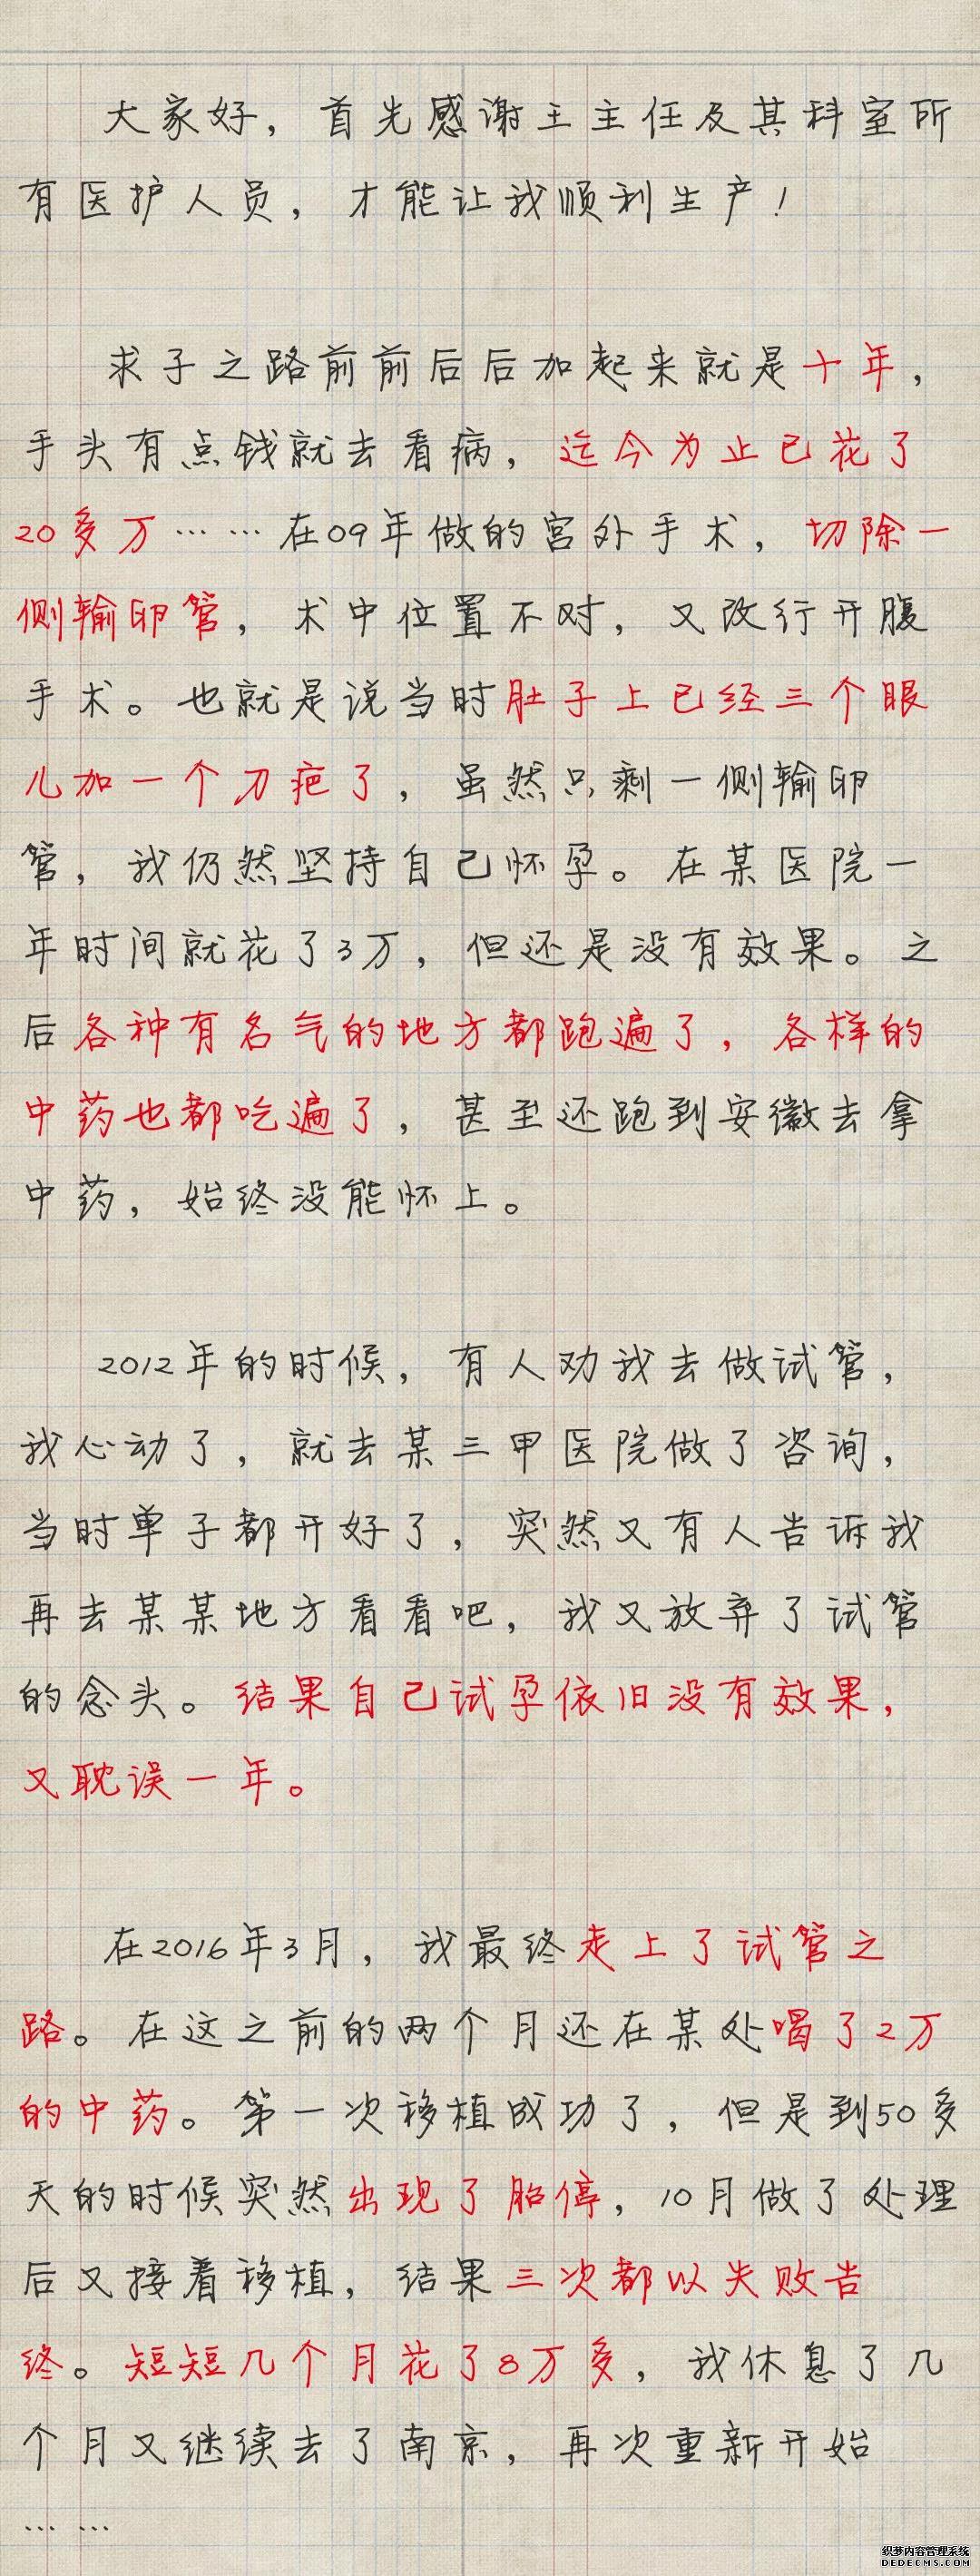 大家好，首先感谢王主任及其科室所
有医护人员，才能让我顺利生产！
求子之路前前后后加起来就是十年，
手头有点钱就去看病，迄今为止已花了
20多万……在09年做的宫外手术，切除一
侧输卵管，术中位置不对，又改行开腹
手术。也就是说当时肚子上已经三个眼
儿加一个刀疤了，虽然只剩一侧输卵
管，我仍然坚持自己怀孕。在某医院一
年时间就花了3万，但还是没有效果。之
后各种有名气的地方都跑遍了，各样的
中药也都吃遍了，甚至还跑到安徽去拿
中药，始终没能怀上。
2012年的时候，有人劝我去做试管，
我心动了，就去某三甲医院做了咨询，
当时单子都开好了，突然又有人告诉我
再去某某地方看看吧，我又放弃了试管
的念头。结果自己试孕依旧没有效果，
又耽误一年。
在2016年3月，我最终走上了试管之
路。在这之前的两个月还在某处喝了2万
的中药。第一次移植成功了，但是到50多
天的时候突然出现了胎停，10月做了处理
后又接着移植，结果三次都以失败告
终。短短几个月花了8万多，我休息了几
个月又继续去了南京，再次重新开始
……
织梦内容管理系统
DEDECMS.COM